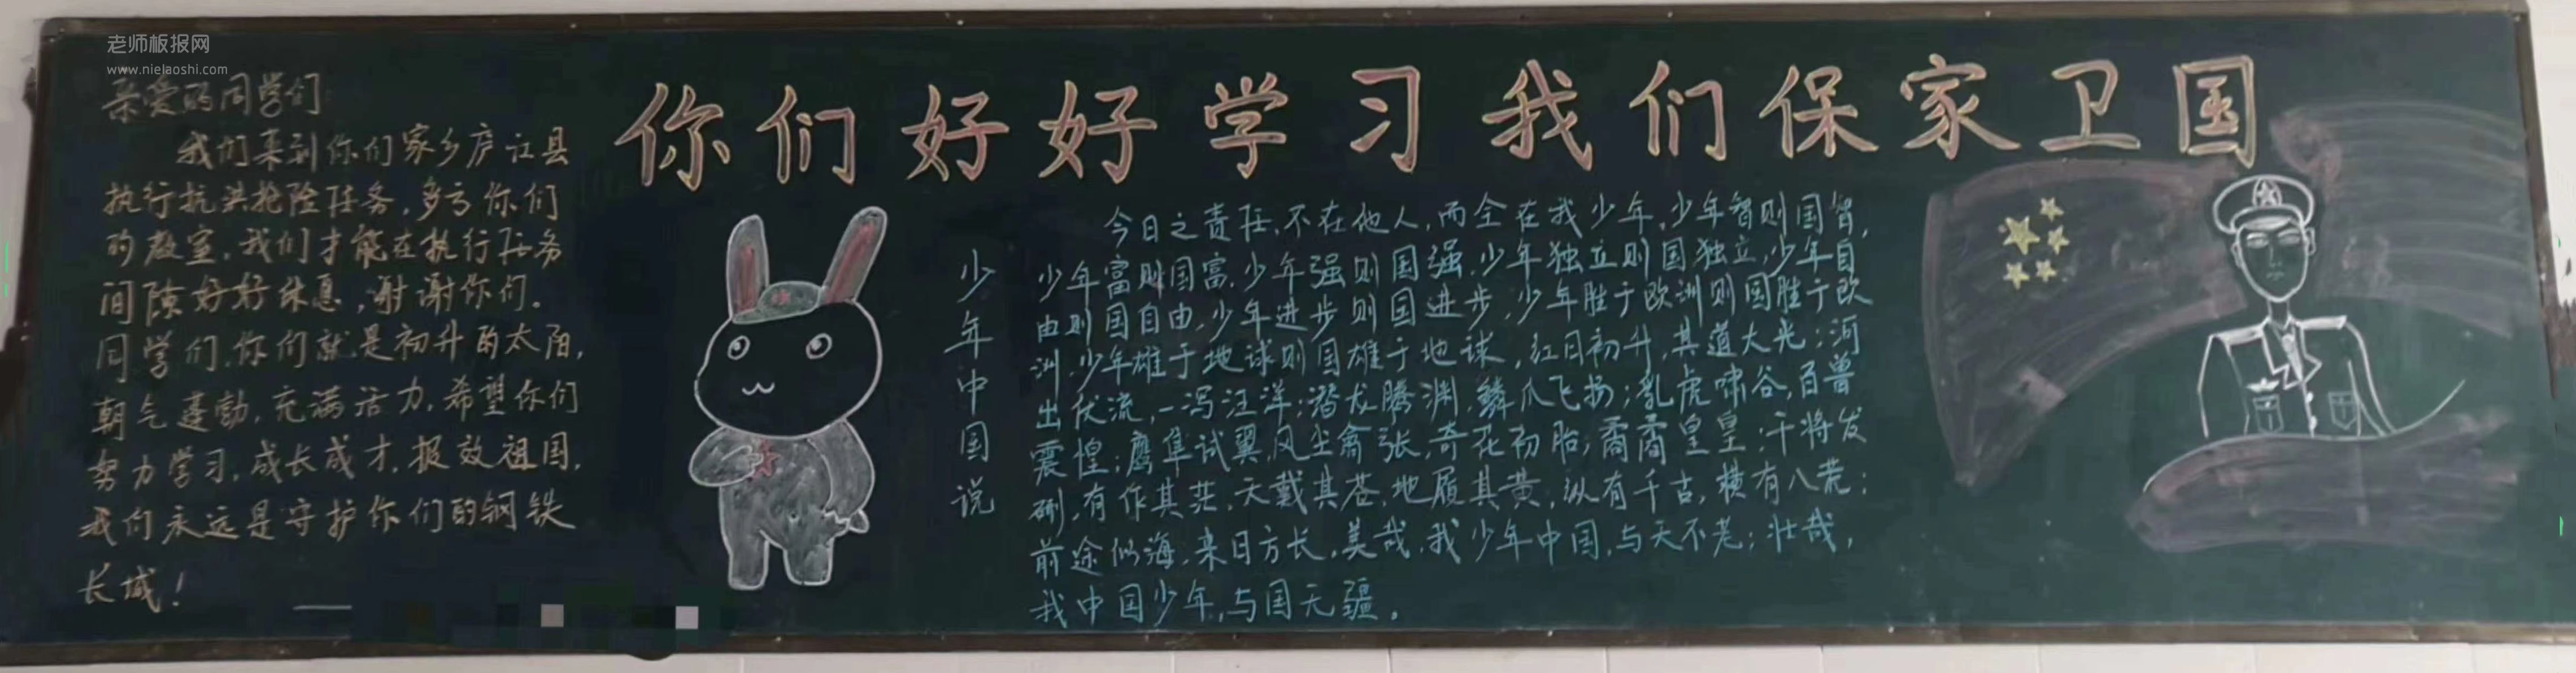 老师板报网
www.nielaoshi.com
你们好好学习我们保家卫国
亲爱的同学们:
我们来到你们家乡庐江县
执行抗洪抢险任务,多亏你们
的教室,我们才能在执行任务
间隙好好休息,谢谢你们。
同学们,你们就是初升的太阳,
朝气蓬勃,充满活力,希望你们
努力学习,成长成才,报效祖国,
我们永远是守护你们的钢铁
长城!
少年中国说
今日之责任,不在他人,而全在我少年,少年智则国智,
少年富则国富,少年强则国强,少年独立则国独立,少年自
由则国自由,少年进步则国进步,少年胜于欧洲则国胜于欧
洲,少年雄于地球则国雄于地球,红日初升,其道大光;河
出伏流,一泻汪洋;潜龙腾渊,鳞爪飞扬;乳虎啸谷,百兽
震惶;鹰隼试翼,风尘翕张,奇花初胎,矞矞皇皇;干将发
硎,有作其芒,天戴其苍,地履其黄,纵有千古,横有八荒;
前途似海,来日方长,美哉,我少年中国,与天不老;壮哉,
我中国少年,与国无疆。